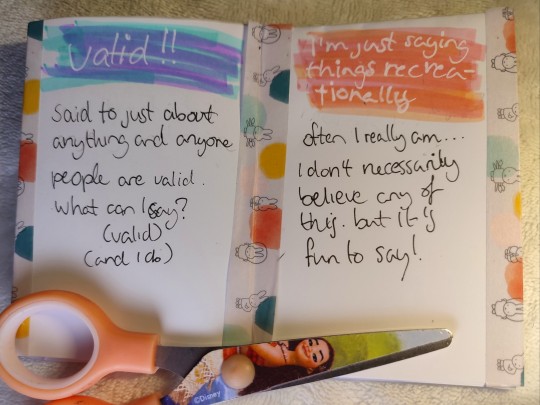 Valid!!
said to just about
anything and anyone
people are valid.
what can I say?
(valid)
(and I do)
I'm just saying
things recrea-
tionally
often I really am...
I don't necessarily
believe any of
this. but it is
fun to say!
©Disney